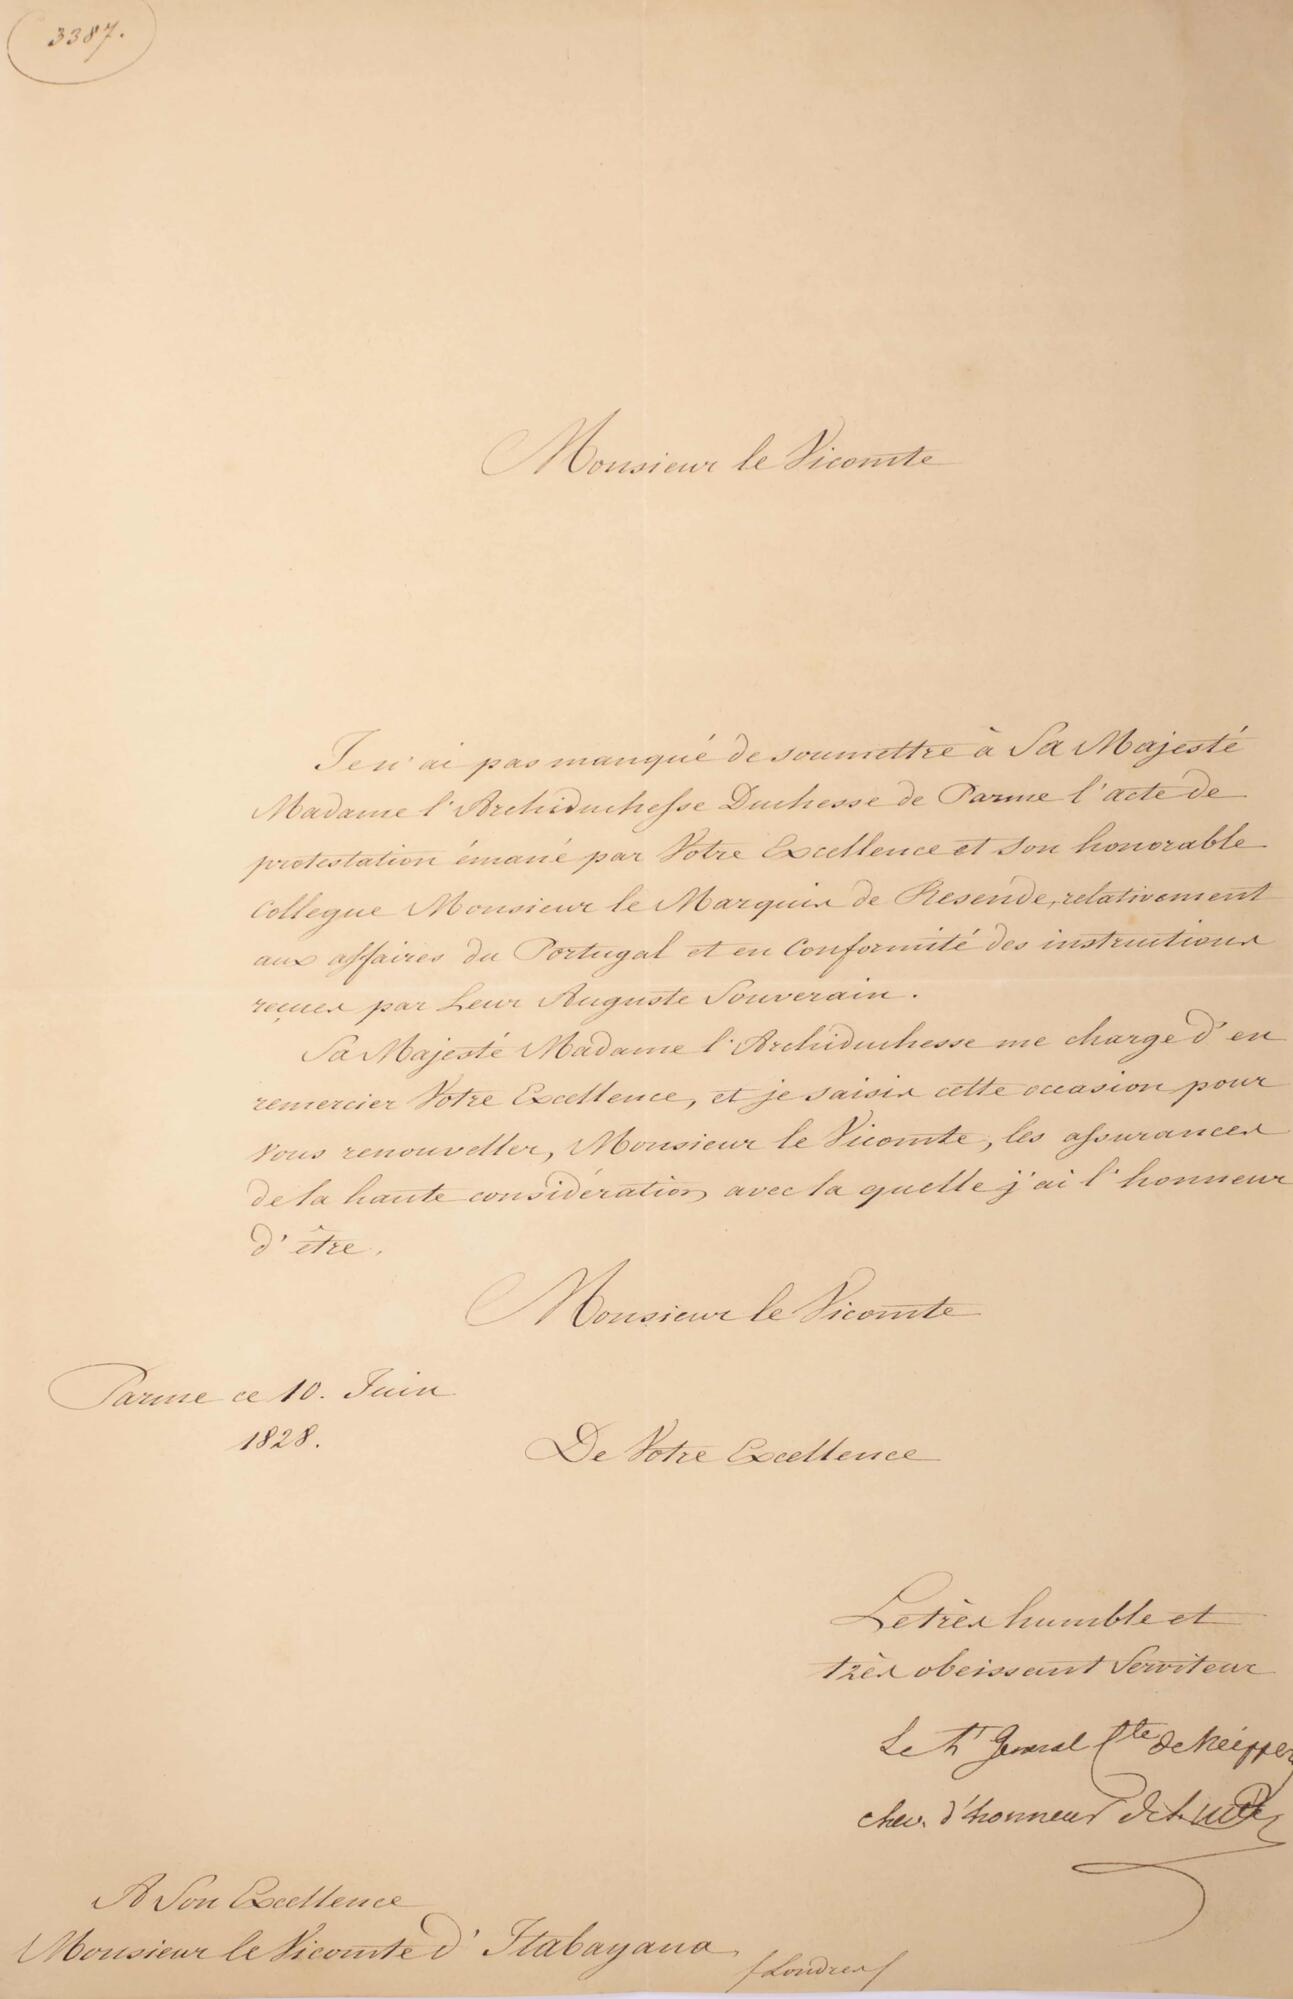 3387.
Monsieur le Vicomte
Je n'ai pas manqué de soumettre à Sa Majesté
Madame l'Archiduchesse Duchesse de Parme l'acte de
protestation émané par Votre Excellence et Son honorable
Collegue Monsieur le Marquis de Resende, relativement
aux affaires du Portugal et en Conformité des instructions
reçues par Leur Auguste Souverain.
Sa Majesté Madame l'Archiduchesse me charge d'en
remercier Votre Excellence, et je saisis cette occasion pour
Vous renouveller, Monsieur le Vicomte, les assurances
de la haute considération avec la quelle j'ai l'honneur
d'être.
Monsieur le Vicomte
Parme ce 10. Juin
1828.
De Votre Excellence
Le très humble et
très obeissant Serviteur
Le Lt General Cte de Neipperg
chev. d'honneur de S.
A Son Excellence
Monsieur le Vicomte d'Itabayana
/Londres/